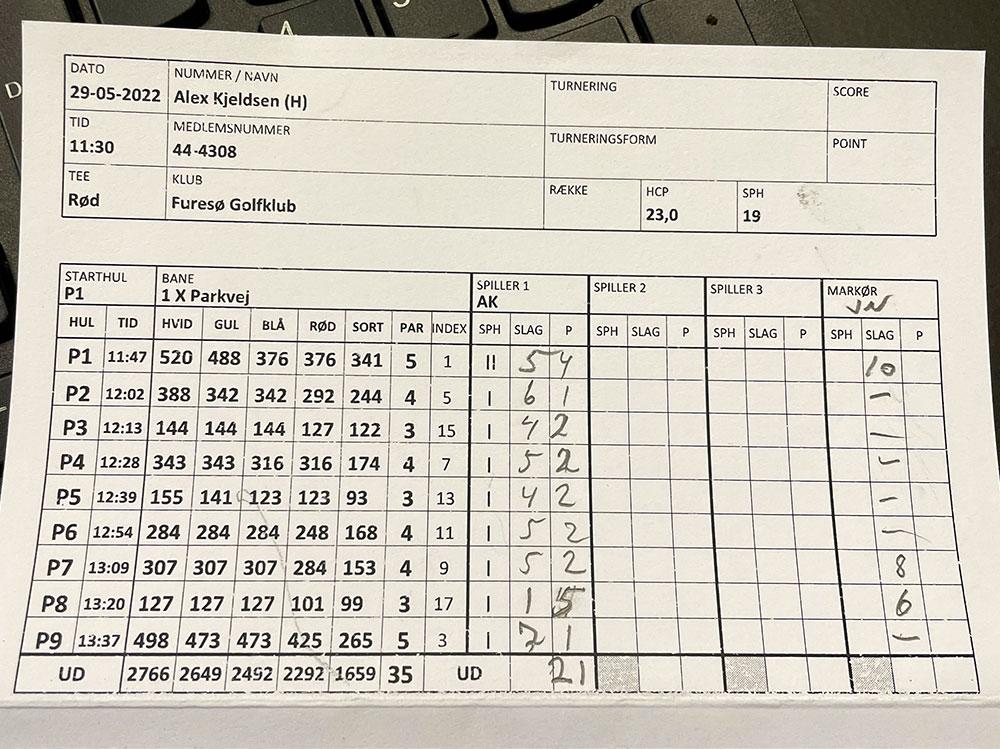 DATO NUMMER / NAVN TURNERING SCORE
29-05-2022 Alex Kjeldsen (H)
TID MEDLEMSNUMMER TURNERINGSFORM POINT
11:30 44-4308
TEE KLUB RÆKKE HCP SPH
Rød Furesø Golfklub 23,0 19
STARTHUL BANE SPILLER 1 SPILLER 2 SPILLER 3 MARKØR
P1 1 X Parkvej AK JN
HUL TID HVID GUL BLÅ RØD SORT PAR INDEX SPH SLAG P SPH SLAG P SPH SLAG P SPH SLAG P
P1 11:47 520 488 376 376 341 5 1 II 5 4 10
P2 12:02 388 342 342 292 244 4 5 I 6 1 –
P3 12:13 144 144 144 127 122 3 15 I 4 2 –
P4 12:28 343 343 316 316 174 4 7 I 5 2 –
P5 12:39 155 141 123 123 93 3 13 I 4 2 –
P6 12:54 284 284 284 248 168 4 11 I 5 2 –
P7 13:09 307 307 307 284 153 4 9 I 5 2 8
P8 13:20 127 127 127 101 99 3 17 I 1 5 6
P9 13:37 498 473 473 425 265 5 3 I 7 1 –
UD 2766 2649 2492 2292 1659 35 UD 21